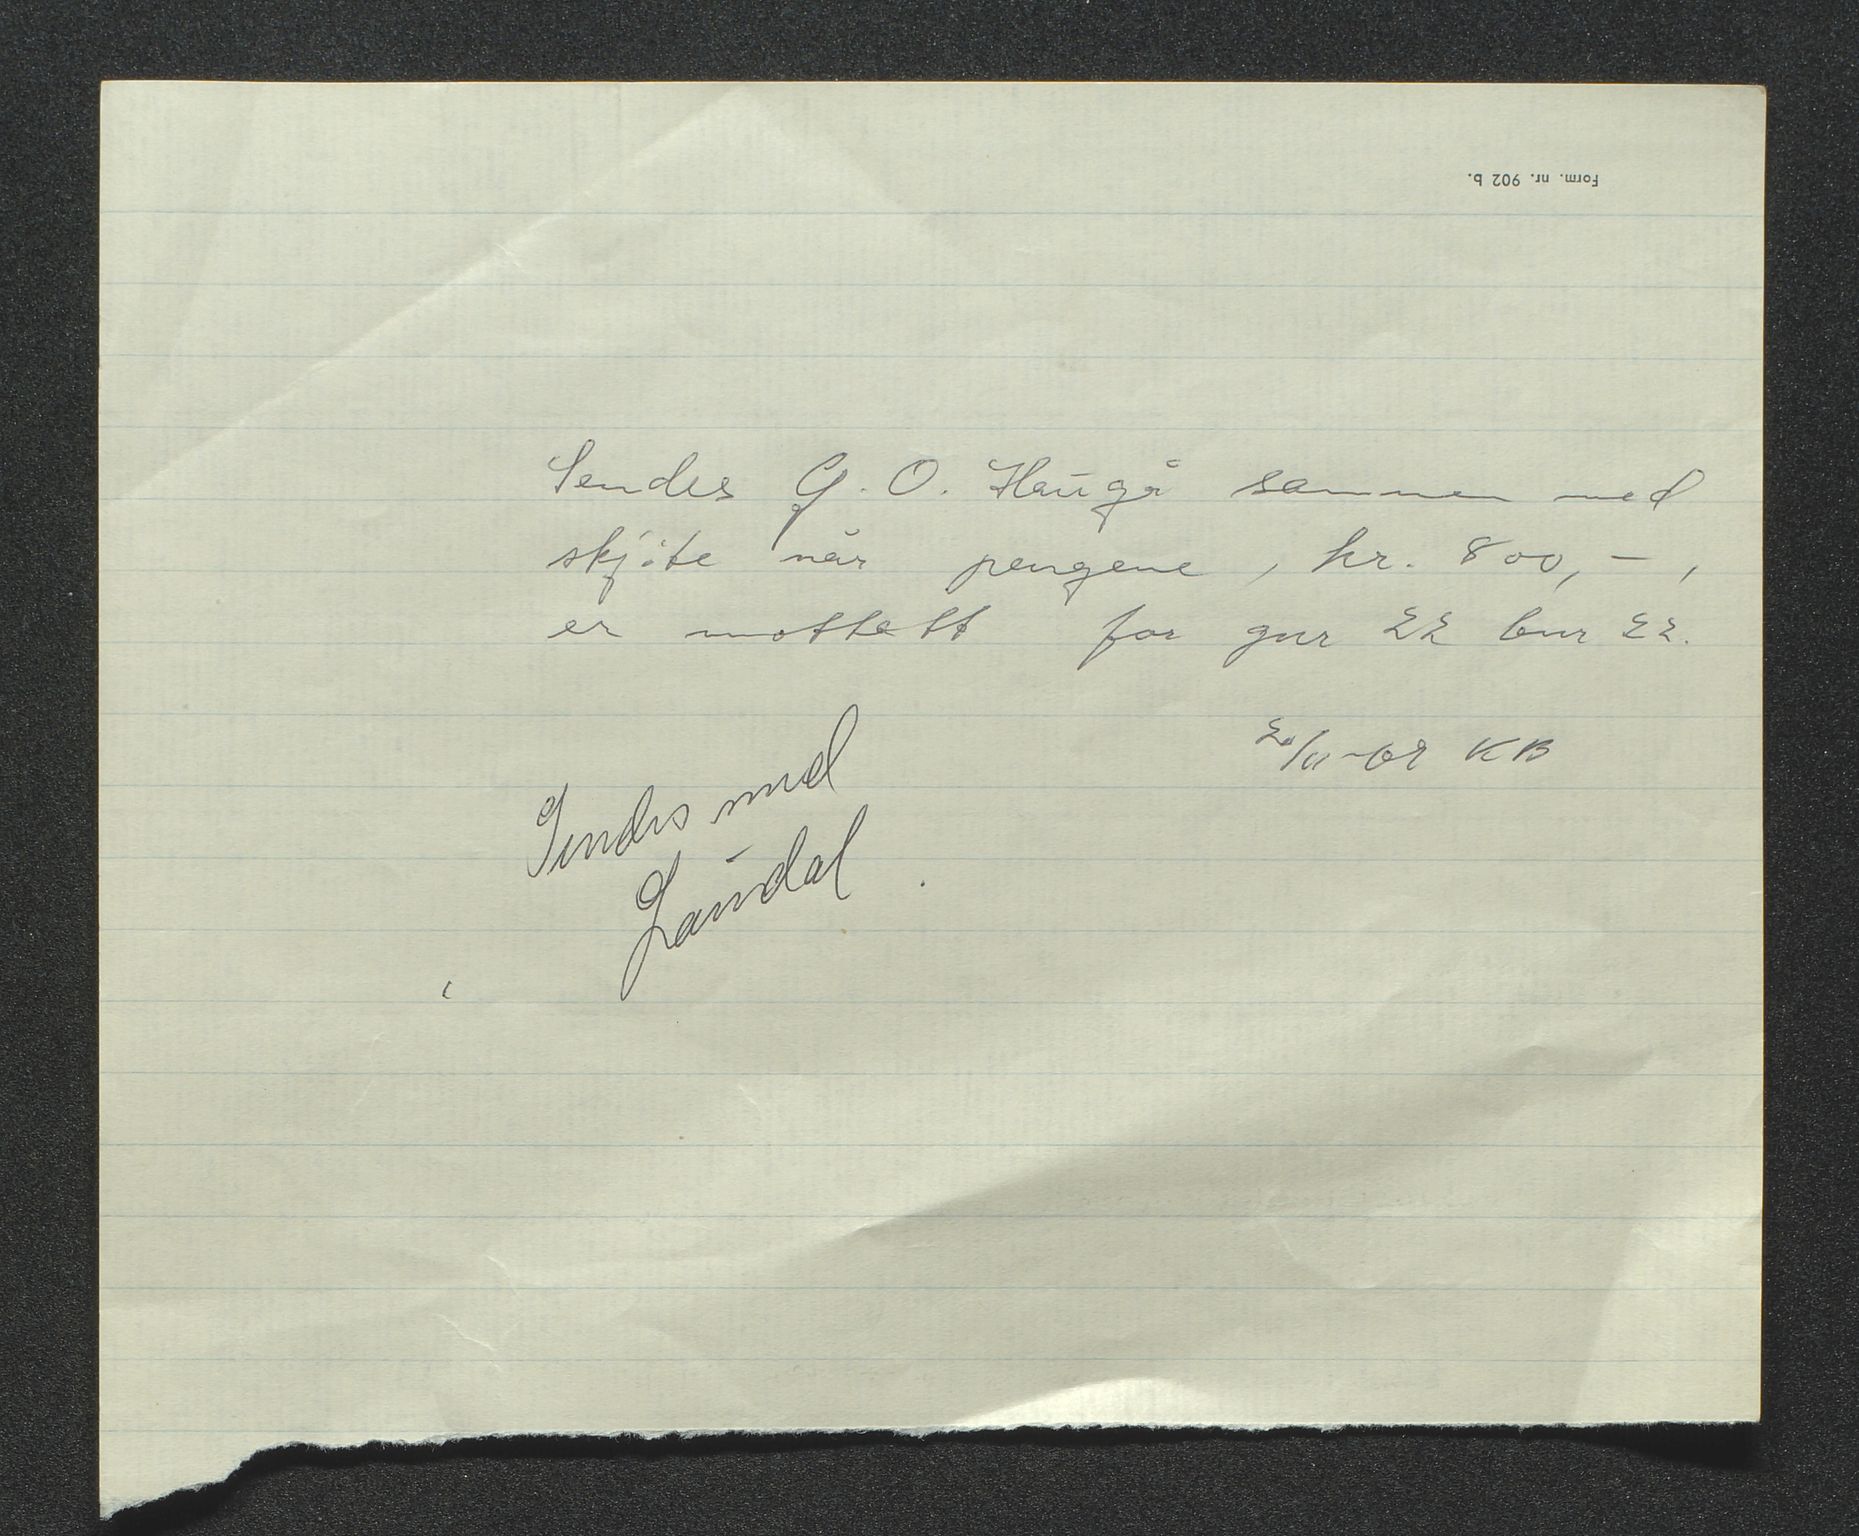 Form. nr. 902 b.
Sendes G. O. Haugå sammen med
skjöte når pengene, kr. 800,-,
er mottatt for gnr 22 bnr 22.
20/11-68 KB
Sendes med
Laudal